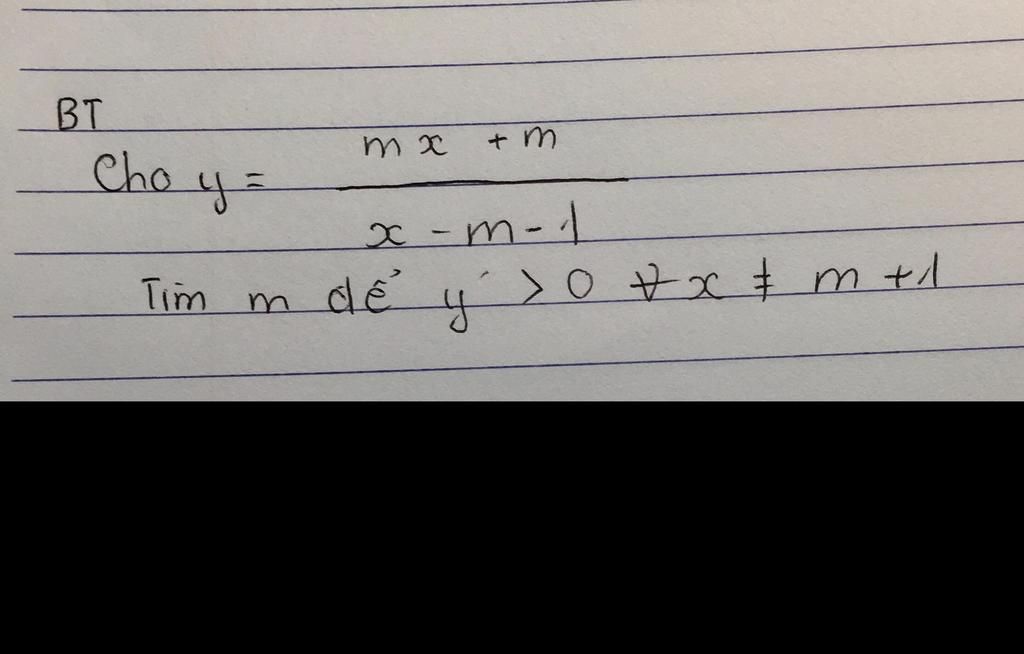 BT
Cho y = \frac{mx + m}{x - m - 1}
Tìm m để y' > 0 ∀x ≠ m + 1